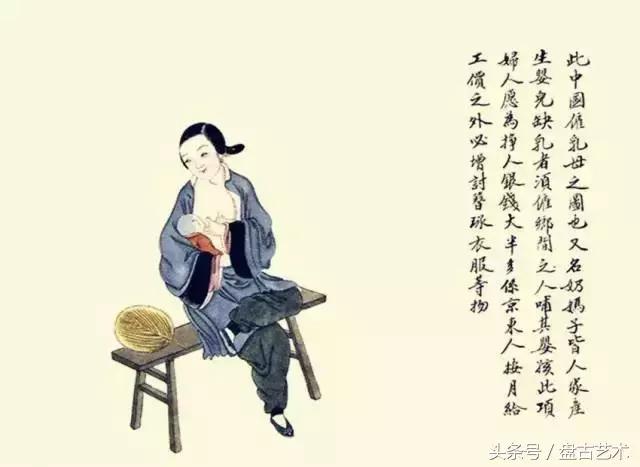 此中國僱乳母之圖也又名奶媽子皆人家産
生嬰兒缺乳者須僱鄉間之人哺其嬰孩此項
婦人愿為掙人銀錢大半多係京東人按月給
工價之外必增討簪環衣服等物
头条号／盘古艺术